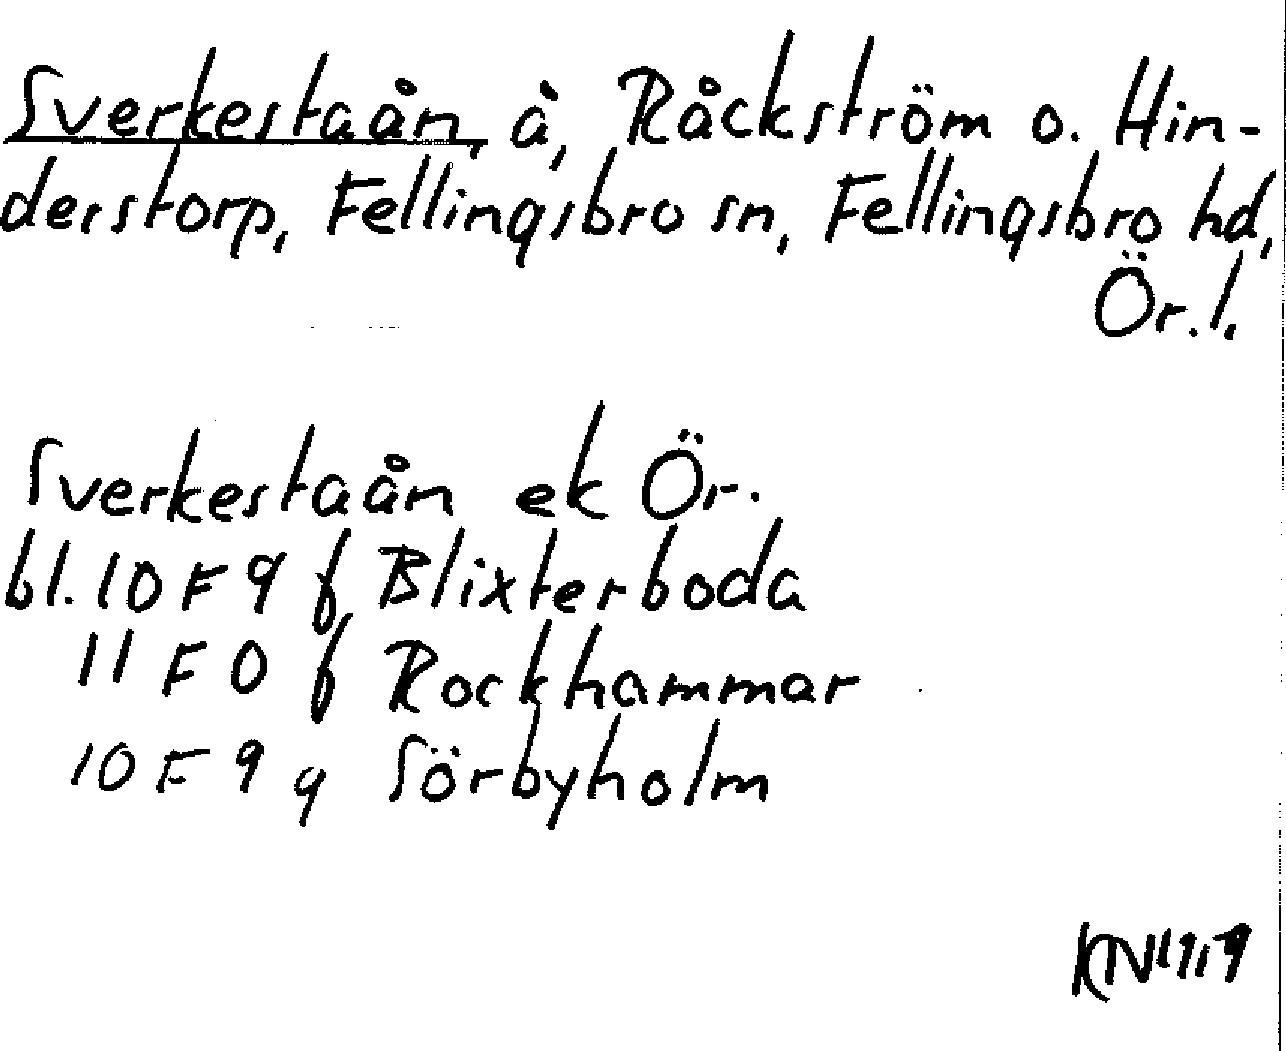 Sverkestaån, å, Råckström o. Hin-
derstorp, Fellingsbro sn, Fellingsbro hd,
Ör. l.
Sverkestaån ek Ör.
bl. 10 F 9 f Blixterboda
11 F 0 f Rockhammar
10 F 9 g Sörbyholm